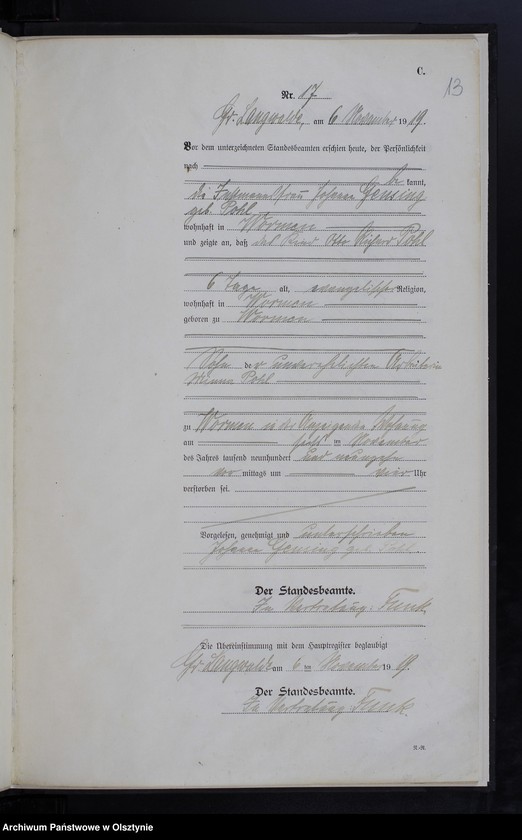 C.
13
Nr. 17
Gr. Langwalde, am 6 November 1919.
Vor dem unterzeichneten Standesbeamten erschien heute, der Persönlichkeit
nach
be kannt,
die Instmannsfrau Johanna Gensing
geb. Pohl
wohnhaft in Wormen
und zeigte an, daß das Kind Otto Richard Pohl
6 Tage alt, evangelischer Religion,
wohnhaft in Wormen
geboren zu Wormen
Sohn der unverehelichten Arbeiterin
Minna Pohl
zu Wormen in der Anzeigenden Wohnung
am November
des Jahres tausend neunhundert und neunzehn
vor mittags um vier Uhr
verstorben sei.
Vorgelesen, genehmigt und unterschrieben
Johanna Gensing geb. Pohl.
Der Standesbeamte.
In Vertretung. Funk.
Die Übereinstimmung mit dem Hauptregister beglaubigt
Gr. Langwalde am 6 ten November 1919.
Der Standesbeamte.
In Vertretung Funk.
Archiwum Państwowe w Olsztynie